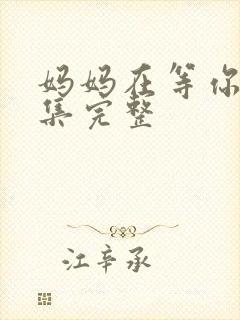 妈妈在等你
集完整
江辛承